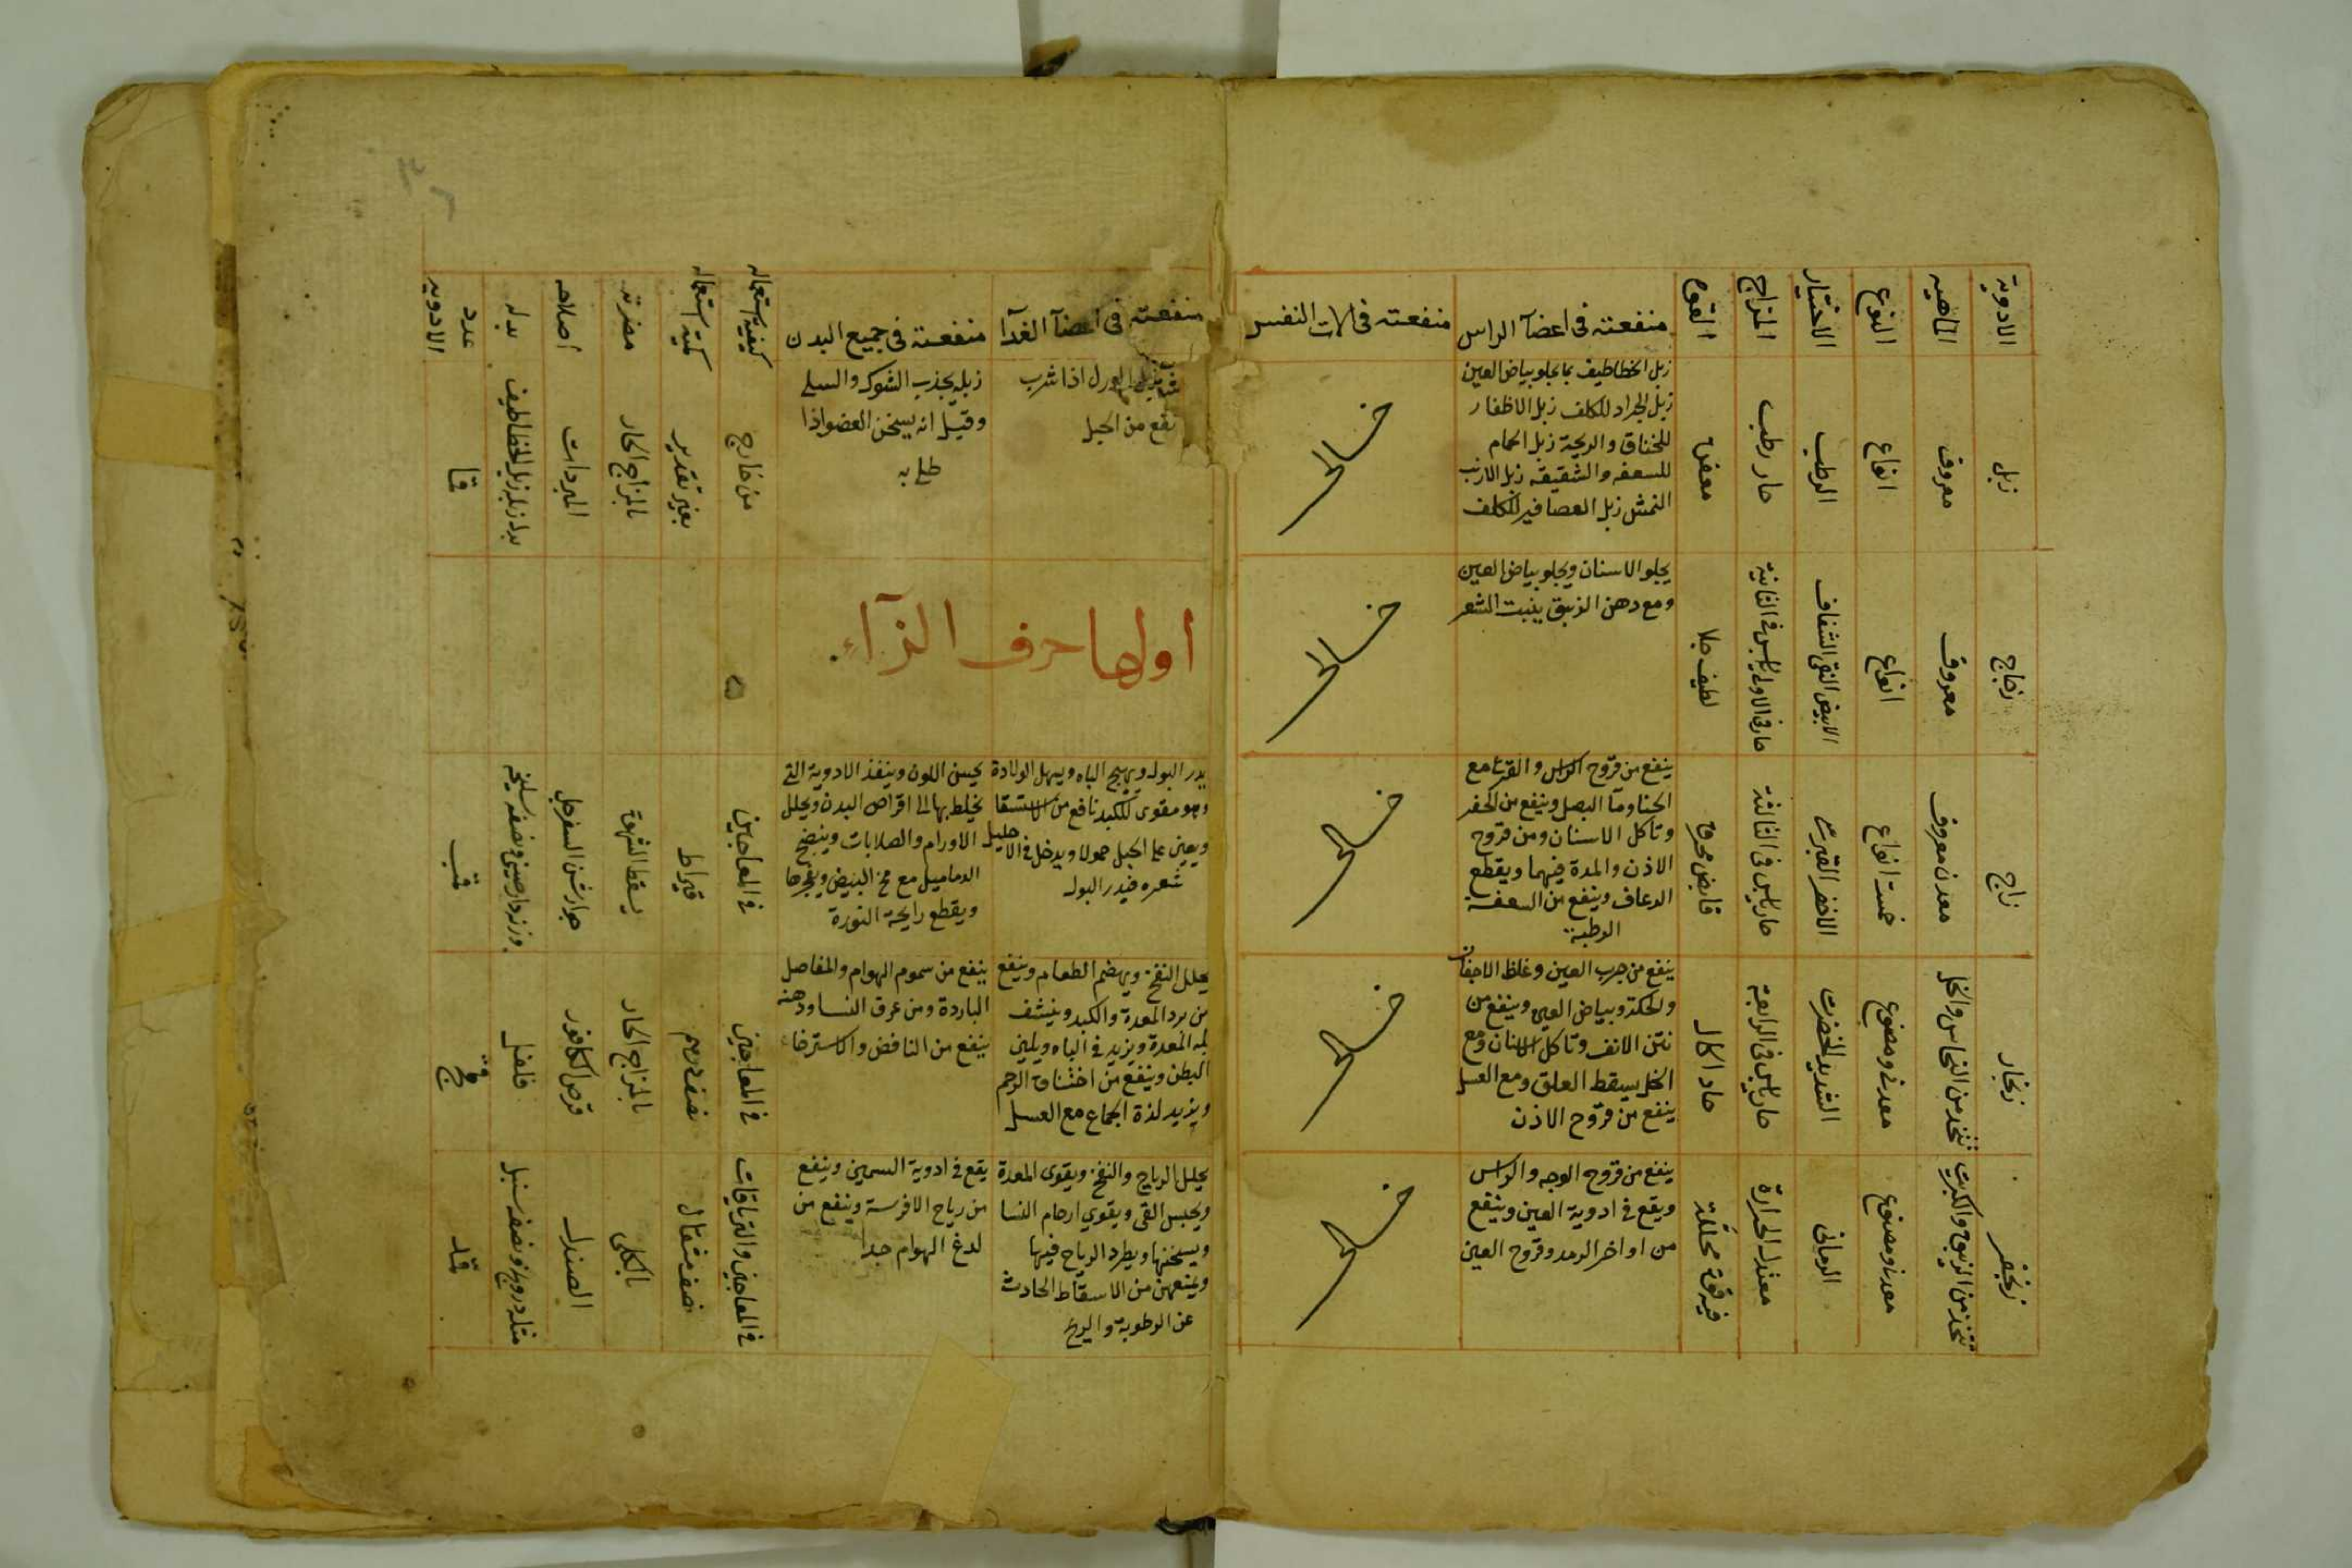 الادوية
الماهية
النوع
الاختيار
المزاج
القوة
منفعته فى اعضآ الراس
منفعته فى الات النفس
منفعته فى اعضآ الغدآ
منفعته فى جميع البدن
كيفية استعماله
كمية استعماله
مضرته
اصلاحه
بدله
عدد الادويه
زبل
معروف
انواع
الرطب
حار رطب
معفن
زبل الخطاطيف يجلو بياض العين
زبل الجراد للكلف زبل الاظفار
للخناق والريحة زبل الحمام
للسعفه والشقيقه زبل الارنب
النمش زبل العصافير للكلف
خالى
الورل اذا شرب
نفع من الحبل
زبله يجذب الشوك والسلى
وقيل انه يسخن العضو اذا
طلى به
من خارج
بغير تقدير
بالمزاج الحار
المبردات
بدل زبله زبل الخطاطيف
قا
زجاج
معروف
انواع
الابيض النقى الشفاف
حار فى الاولى يابس فى الثانية
لطيف جلا
يجلو الاسنان ويجلو بياض العين
ومع دهن الزبيق ينبت الشعر
خالى
اولها حرف الزآء
زاج
معدن معروف
خمسة انواع
الاخضر القبرسى
حار يابس فى الثالثة
قابض محرق
ينفع من قروح الراس والقرع مع
الحنا ومآ البصل وينفع من الحفر
وتاكل الاسنان ومن قروح
الاذن والمدة فيهما ويقطع
الرعاف وينفع من السعفة
الرطبة
خالى
يدر البول ويهيج الباه ويسهل الولادة
وهو مقوى للكبد نافع من الاستسقا
ويعين على الحبل حمولا ويدخل فى الاحليل
شعره فيدر البول
يحسن اللون وينفذ الادوية التى
يخلط بها الى اقراص البدن ويحلل
الاورام والصلابات وينضج
الدماميل مع مخ البيض ويفجرها
ويقطع رايحة النورة
فى المعاجين
قيراط
يسقط الشهوة
جوارشن السفرجل
وزن دارصينى ونصفه سليخه
قب
زنجار
تتخذ من النحاس والخل
معدنى ومصنوع
الشديد الخضرة
حار يابس فى الرابعة
حاد اكال
ينفع من جرب العين وغلظ الاجفان
والحكة وبياض العين وينفع من
نتن الانف وتاكل الاسنان ومع
الخل يسقط العلق ومع العسل
ينفع من قروح الاذن
خالى
يحلل النفخ ويهضم الطعام وينفع
من برد المعدة والكبد وينشف
بلة المعدة ويزيد فى الباه ويلين
البطن وينفع من اختناق الرحم
ويزيد لذة الجماع مع العسل
ينفع من سموم الهوام والمفاصل
الباردة ومن عرق النسا ودهنه
ينفع من النافض والاسترخاء
فى المعاجين
نصف درهم
بالمزاج الحار
قرص الكافور
فلفل
قج
زنجفر
تتخذ من الزيبق والكبريت
معدنى ومصنوع
الرمانى
معتدل الحرارة
فيه قوة محللة
ينفع من قروح الوجه والراس
ويقع فى ادوية العين وينفع
من اواخر الرمد وقروح العين
خالى
يحلل الرياح والنفخ ويقوى المعدة
ويحبس القى ويقوي ارحام النسا
ويسخنها ويطرد الرياح فيها
ويمنعهن من الاسقاط الحادث
عن الرطوبة والريح
يقع فى ادوية السمين وينفع
من رياح الافرسة وينفع من
لدغ الهوام جدا
فى المعاجين والترياقات
نصف مثقال
بالكلى
الصندل
مثله درونج ونصفه سنبل
قد